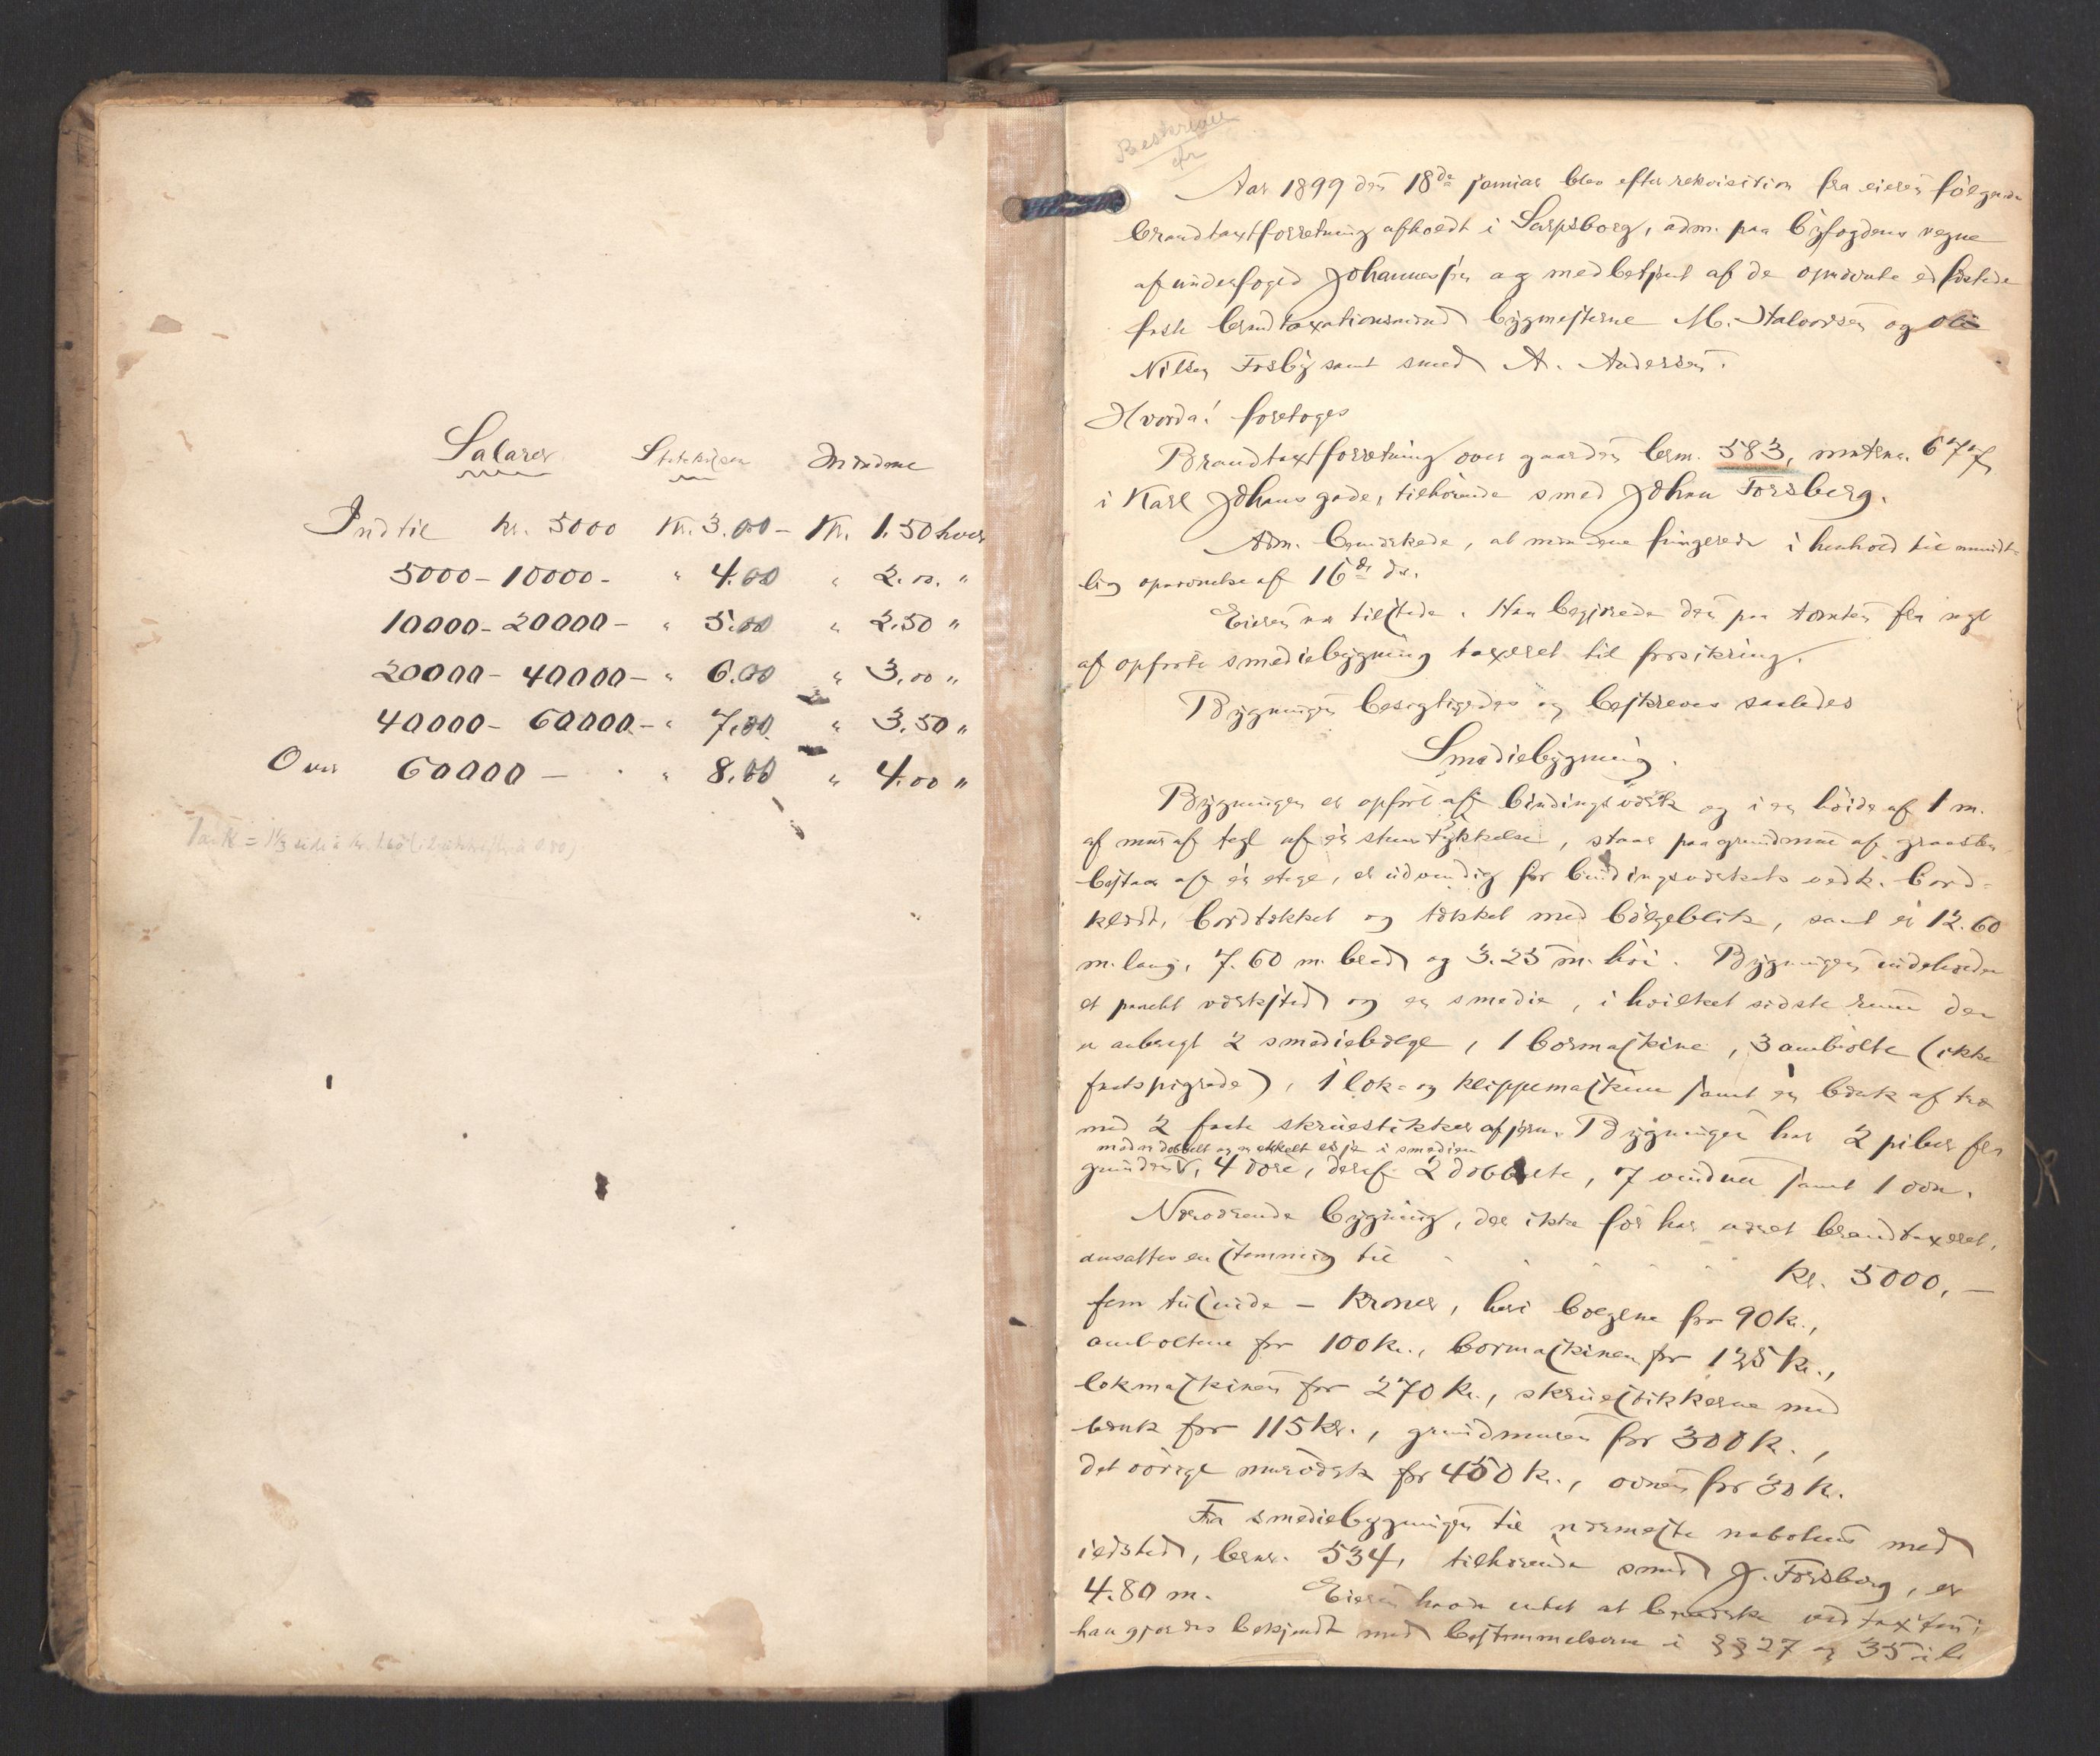 Salarer Statskassen Mændene
Indtil kr. 5000 Kr. 3.00 - Kr. 1.50 hver
5000 - 10000 - " 4.00 " 2.00 "
10000 - 20000 - " 5.00 " 2.50 "
20000 - 40000 - " 6.00 " 3.00 "
40000 - 60000 - " 7.00 " 3.50 "
Over 60000 - " 8.00 " 4.00 "
Aar 1899 den 18de januar blev efter rekvisition fra eieren følgende
brandtaxtforretning afholdt i Sarpsborg, adm. paa byfogdens vegne
af underfoged Johannessen og medbetjent af de opnævnte edfæstede
faste brandtaxationsmænd bygmestrene M. Halvorsen og Ole
Nilsen Fosby samt smed A. Andersen.
Hvorda! foretoges
Brandtaxtforretning over gaarden brnr. 583, matrnr. 677
i Karl Johans gade, tilhørende smed Johan Forsberg.
Adm. bemærkede, at mændene fungerede i henhold til mundt-
lig opnævnelse af 16de ds.
Eieren var tilstede. Han begjærede den paa tomten fra nyt
af opførte smediebygning taxeret til forsikring.
Bygningen besigtigedes og beskreves saaledes
Smediebygning.
Bygningen er opført af bindingsværk og i en høide af 1 m.
af mur af tegl af én stens tykkelse, staar paa grundmur af graasten
bestaar af én etage, er udvendig for bindingsverkets vedk. bord-
klædt, bordtækket og tækket med bølgeblik, samt er 12.60
m. lang, 7.60 m. bred og 3.25 m. høi. Bygningen indeholder
et panelt værksted og en smedie, i hvilket sidste rum der
er anbragt 2 smediebælge, 1 bormaskine, 3 ambolte (ikke
fastspigrede), 1 lok- og klippemaskine samt en bænk af træ
med 2 faste skruestikker af jern. Bygningen har 2 piber fra
med en dobbelt og en enkelt esje i smedien
grunden V, 4 døre, deraf 2 dobbelte, 7 vinduer samt 1 ovn.
Nærværende bygning, der ikke før har været brandtaxeret,
ansattes enstemmig til . . . . . kr. 5000,-
fem tusinde - kroner, heri bælgene for 90 kr.,
amboltene for 100 kr., bormaskinen for 125 kr.,
lokmaskinen for 270 kr., skruestikkerne med
bænk for 115 kr., grundmuren for 300 kr.,
det øvrige murværk for 450 kr., ovnen for 30 kr.
Fra smediebygningen til nærmeste nabohus med
ildsted, brnr. 534, tilhørende smed J. Forsberg, er
4.80 m. Eieren havde intet at bemærke ved taxten;
han gjordes bekjendt med bestemmelserne i §§ 27 og 35 i